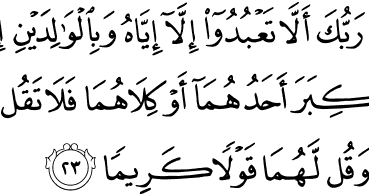 رَبُّكَ أَلَّا تَعۡبُدُوٓاْ إِلَّآ إِيَّاهُ وَبِٱلۡوَٰلِدَيۡنِ
كِبَرَ أَحَدُهُمَآ أَوۡ كِلَاهُمَا فَلَا تَقُل
وَقُل لَّهُمَا قَوۡلٗا كَرِيمٗا ٢٣